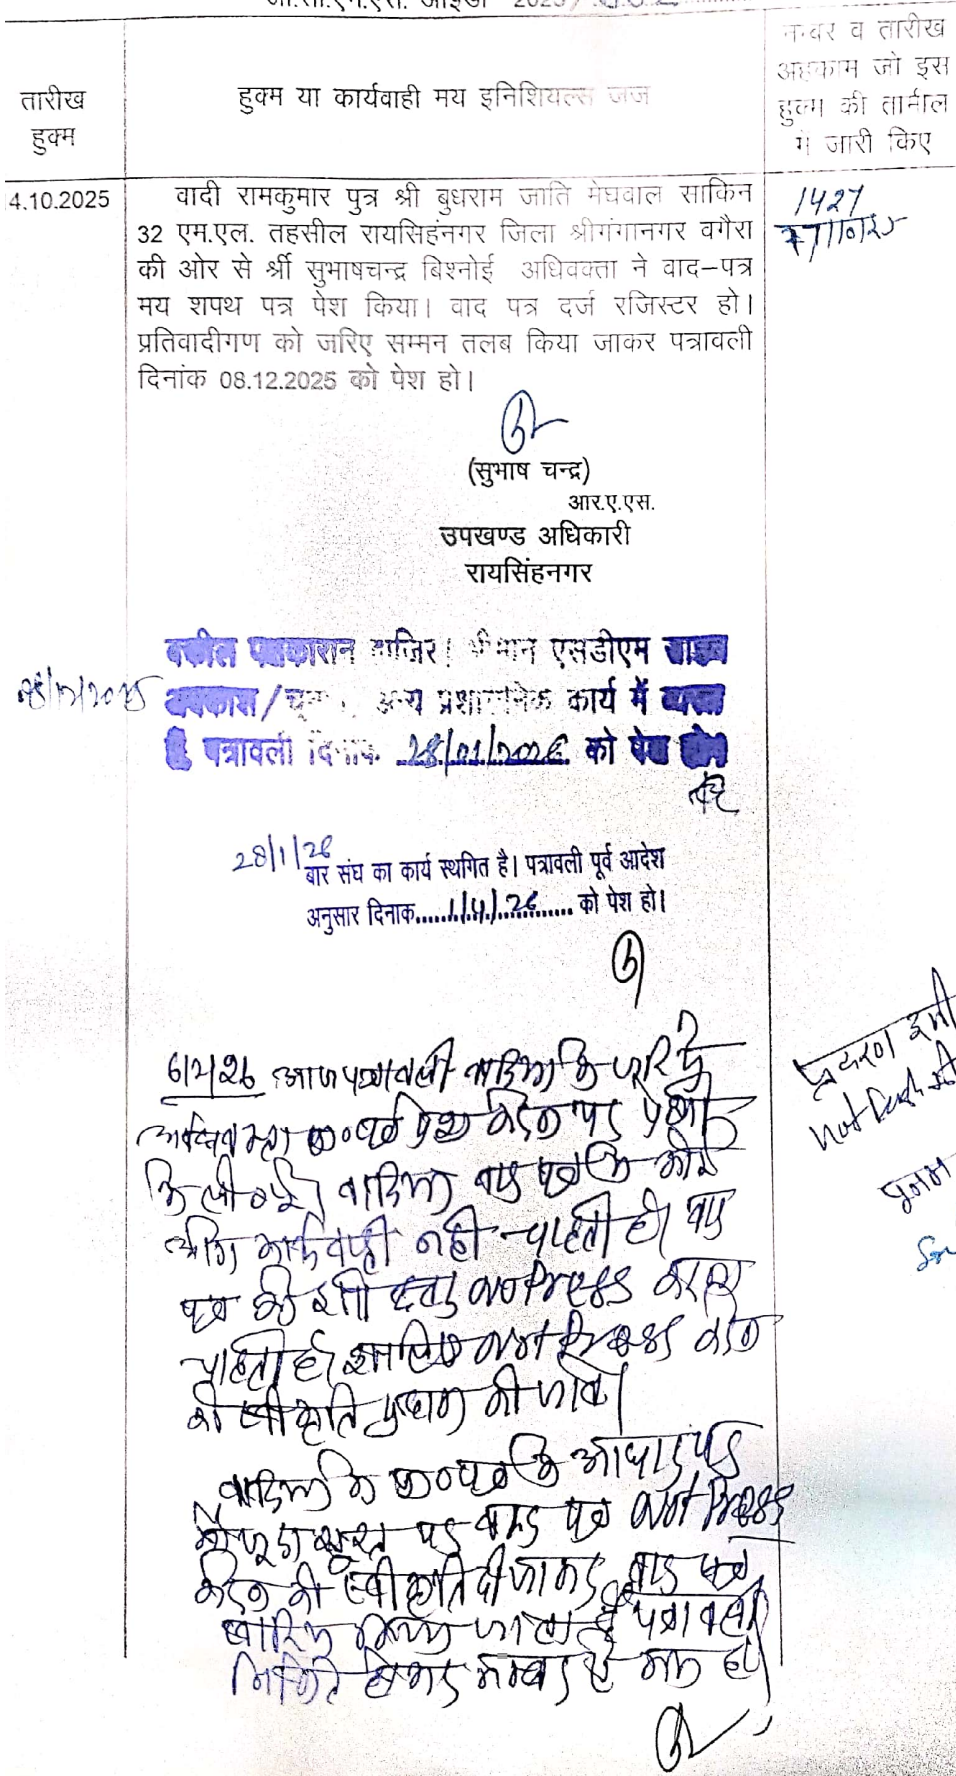 जी.सी.एम.एस. आईडी 2025/
तारीख हुक्म
हुक्म या कार्यवाही मय इनिशियल्स जज
नम्बर व तारीख
अहकाम जो इस
हुक्म की तामील
में जारी किए
4.10.2025
वादी रामकुमार पुत्र श्री बुधराम जाति मेघवाल साकिन
32 एम.एल. तहसील रायसिहंनगर जिला श्रीगंगानगर वगैरा
की ओर से श्री सुभाषचन्द्र बिश्नोई अधिवक्ता ने वाद-पत्र
मय शपथ पत्र पेश किया। वाद पत्र दर्ज रजिस्टर हो।
प्रतिवादीगण को जरिए सम्मन तलब किया जाकर पत्रावली
दिनांक 08.12.2025 को पेश हो।
1427
(सुभाष चन्द्र)
आर.ए.एस.
उपखण्ड अधिकारी
रायसिंहनगर
08/12/2025
वकील पक्षकारान हाजिर। श्रीमान एसडीएम साहब
अवकाश/चुनाव अन्य प्रशासनिक कार्य में व्यस्त
है पत्रावली दिनांक 28/01/2026 को पेश होवे
28/1/26
बार संघ का कार्य स्थगित है। पत्रावली पूर्व आदेश
अनुसार दिनांक......1/4/26.......... को पेश हो।
6/2/26 आज पत्रावली वादिया के
प्रा०पत्र पेश करने पर पेशी
ली गई। वादिया वाद पत्र कोई
कार्यवाही नहीं चाहती है। वाद
पत्र को इसी स्तर Not Press करना
चाहती है। इसलिए Not Press करने
की स्वीकृति प्रदान की जावे।
वादिया के प्रा०पत्र के आधार पर
पर वाद पत्र Not Press
करने की स्वीकृति दी जाकर वाद पत्र
खारिज किया जाता है। पत्रावली
नम्बर से कम हो।
प्रकरण इसी
Not Press